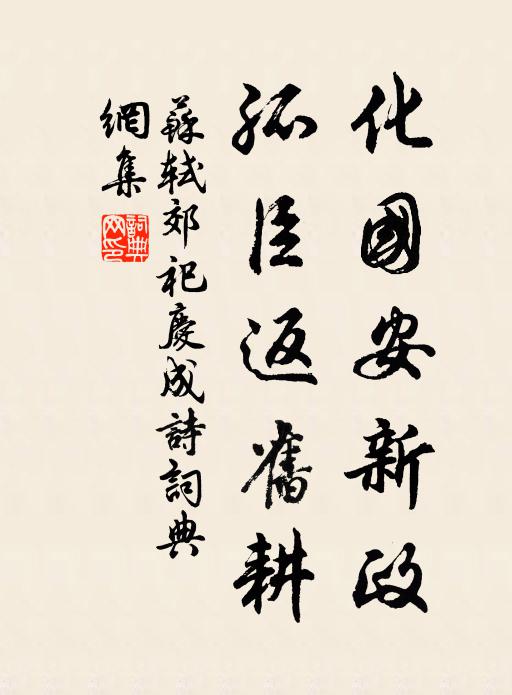 化國安新政
孤臣返舊耕
蘇軾郊祀慶成詩詞典
網集
詞典
网印